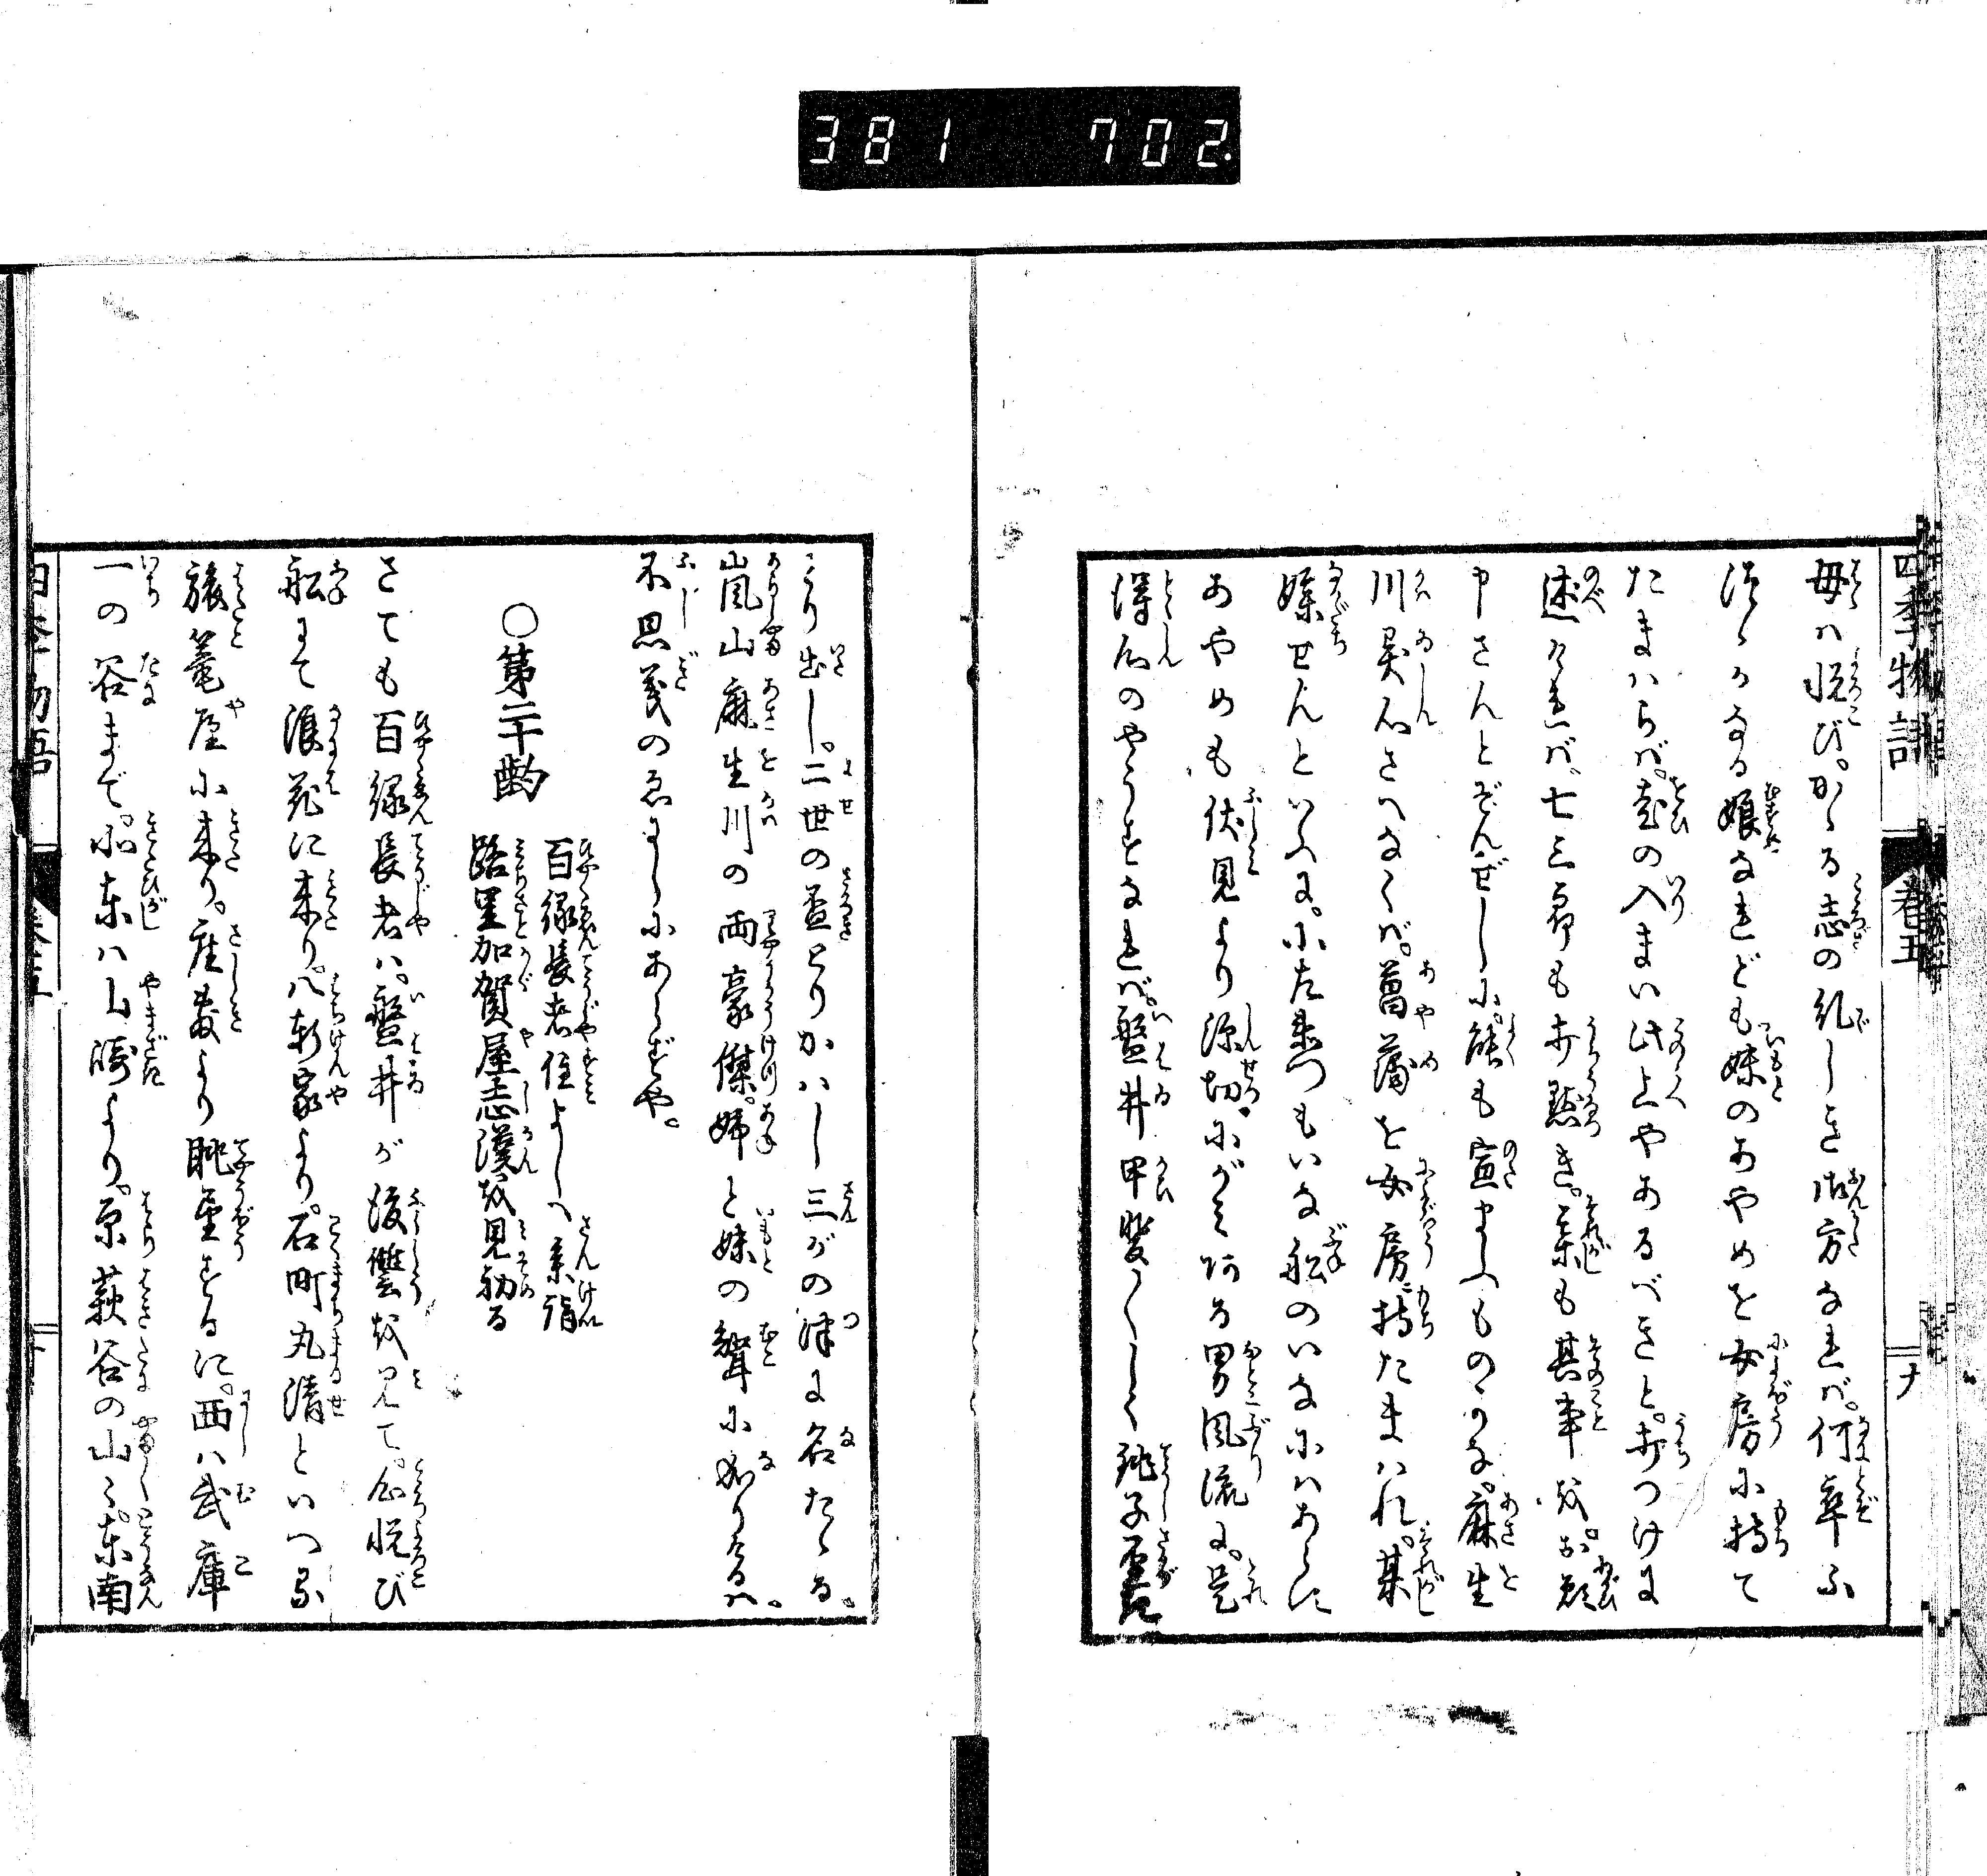 381 702.
四季物語 巻五 十
母ハ悦び。かゝる志の礼しき御方なれバ。何卒ふ
つゝかなる娘なれども妹のあやめを女房に持て
たまハらバ。老の入まい此上やあるべきと。打つけに
述けれバ。七三郎も打點き。某も其事を。お願
申さんとぞんぜしに。能も宣まふものかな。麻生
川異心さへなくバ。菖蒲を女房に持たまハれ。某
媒せんといふに。
あやめも伏見より深切にがみ有る男風流に。是
得心のやうすなれバ。盤井甲斐〴〵しく銚子盃
とり出し。二世の盃とりかハし三がの津に名たゝる。
嵐山麻生川の両豪傑。姉と妹の聟に成りたるハ。
不思義のゑにしにあらずや。
○第二十齣
百緑長者住よしへ参詣
路里加賀屋志漢を見初る
さても百緑長者ハ。盤井が復讐を見て。心悦び
船にて浪花に来り。八軒家より。石町丸清といへる
旅篭屋に来り。座敷より眺望するに。西ハ武庫
一の谷まで。北東ハ山崎より。原萩谷の山々。東南
四季物語 巻五